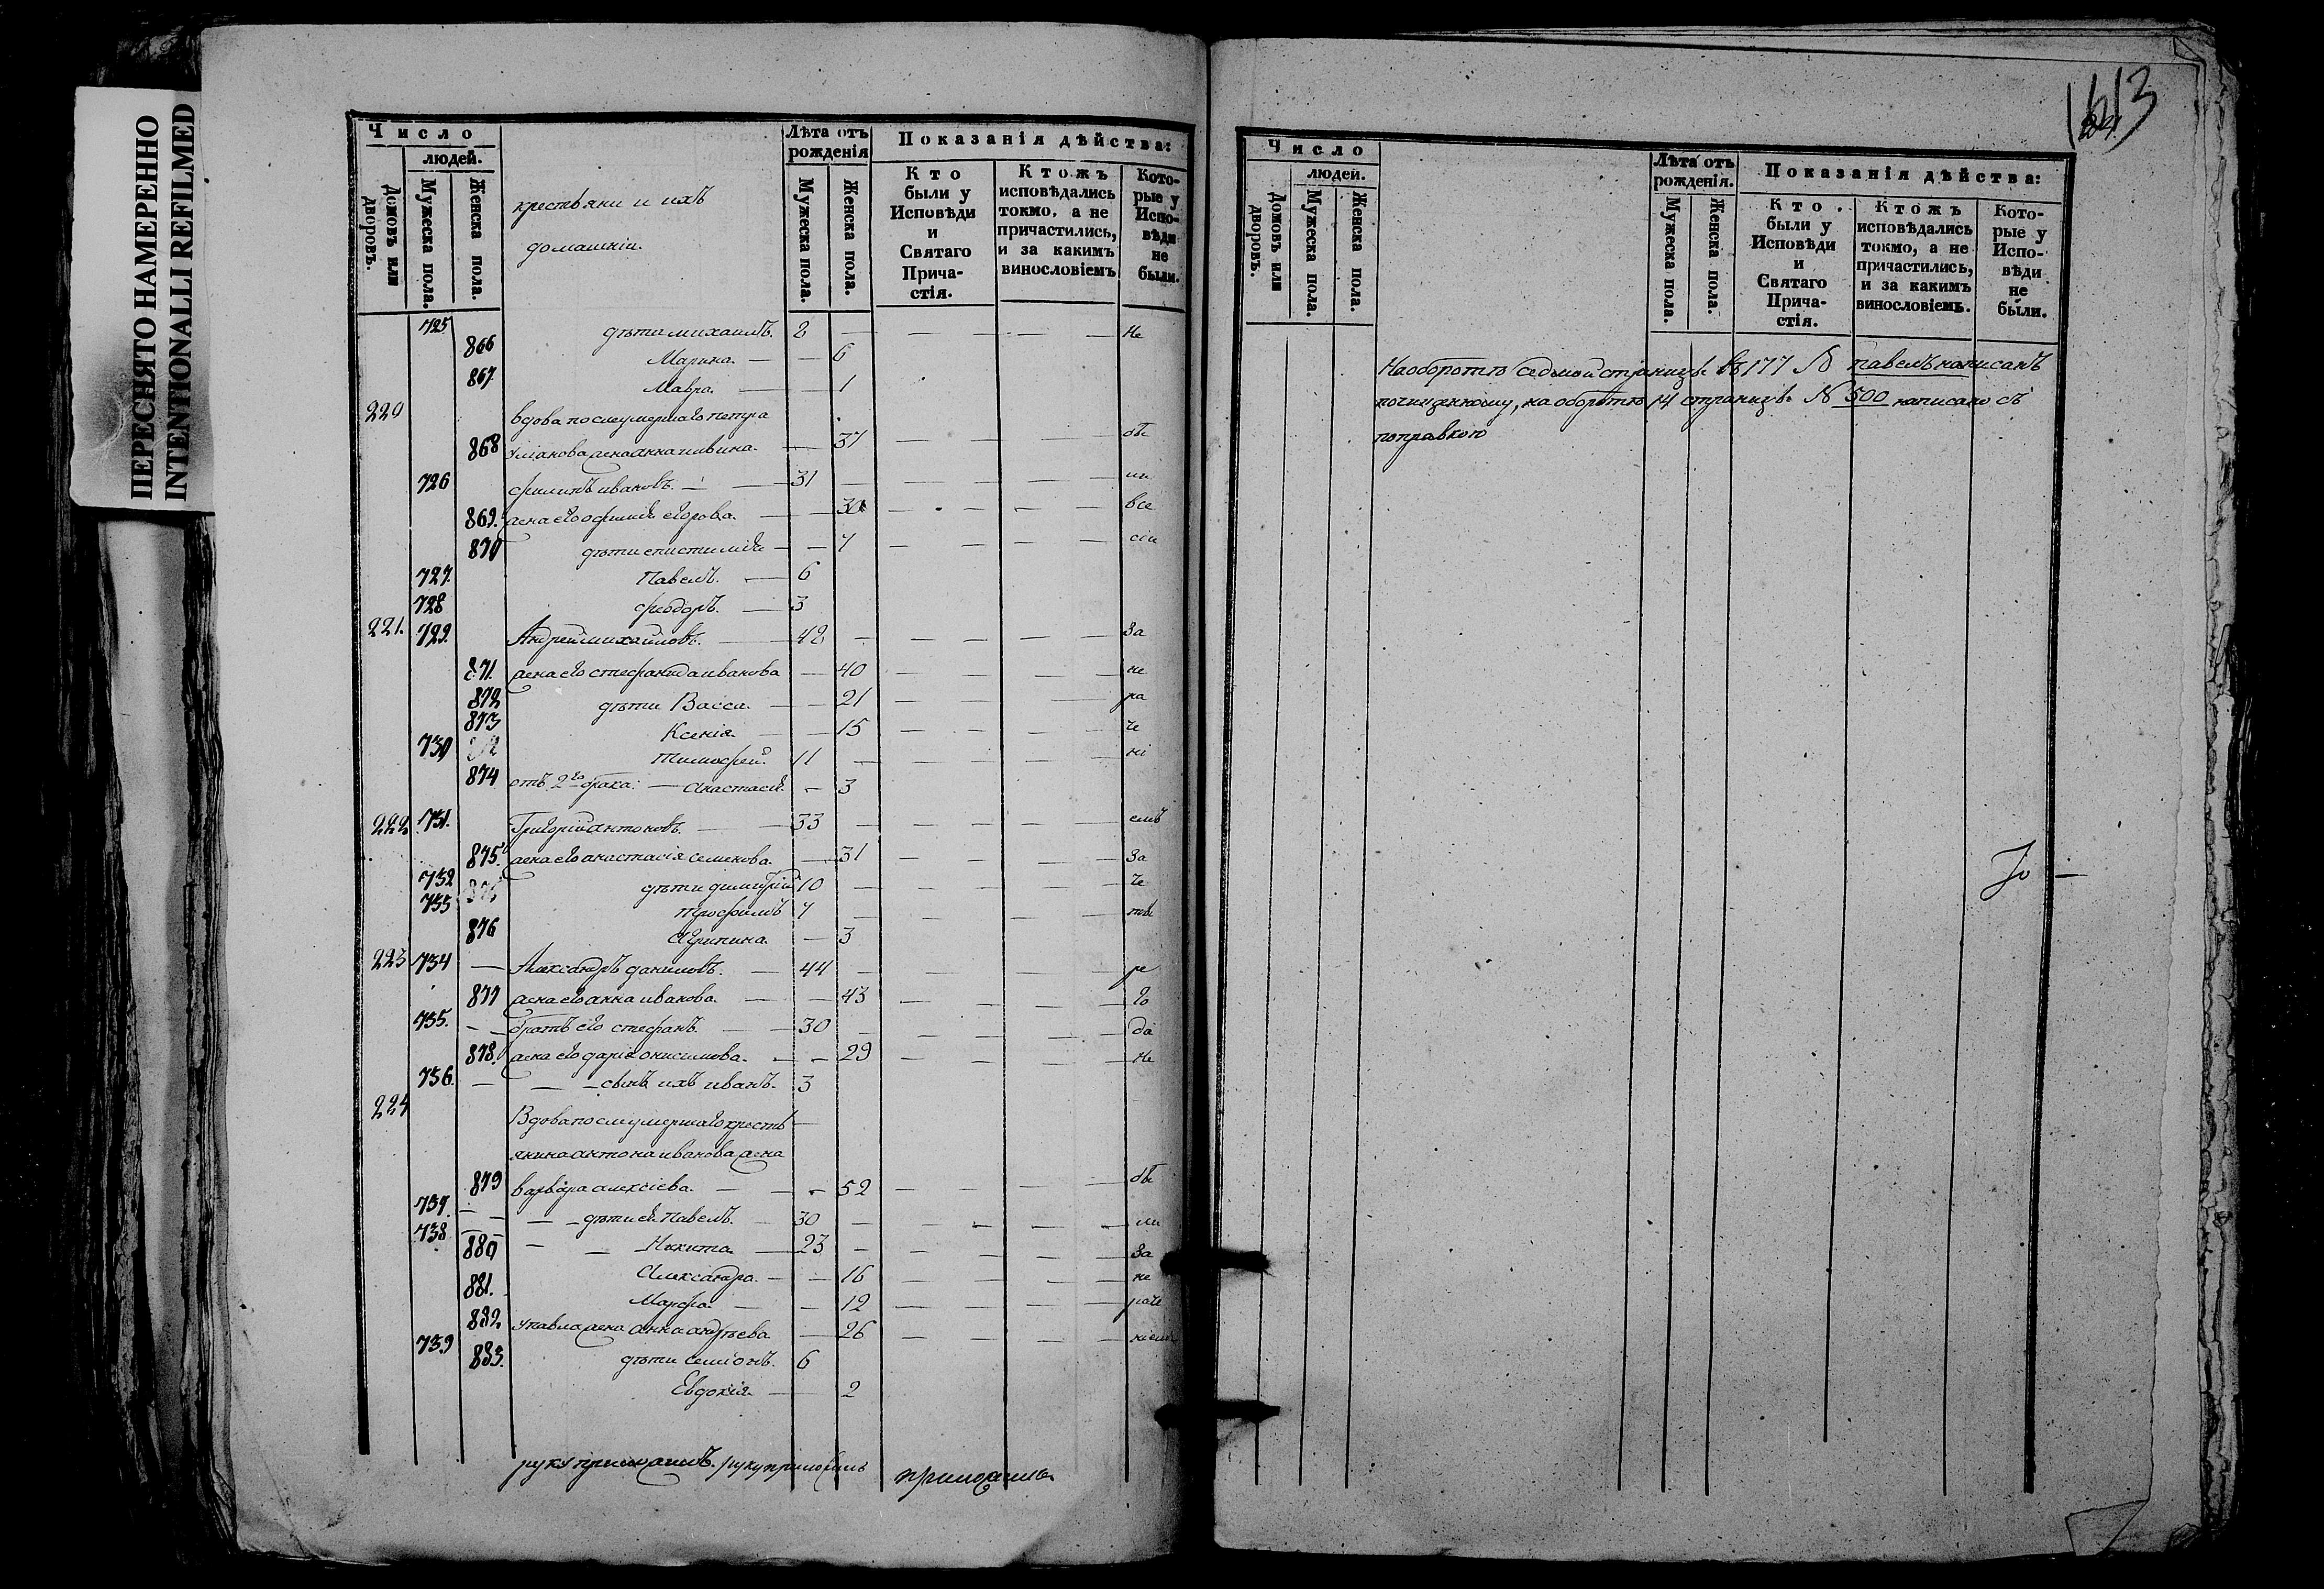 ПЕРЕСНЯТО НАМЕРЕННО
INTENTIONALLI REFILMED
Число
людей.
Домовъ или дворовъ.
Мужеска пола.
Женска пола.
крестьяни и ихъ
домашніи
Лѣта отъ рожденія
Мужеска пола.
Женска пола.
Показанія дѣйства:
Кто были у Исповѣди и Святаго Прича-стія.
Ктожъ исповѣдались токмо, а не причастились, и за какимъ винословіемъ
Кото-рые у Испо-вѣди не были.
725 дѣти михаилъ. 2 — — — — не
866 Марина. — — 6
867 Мавра. — — 1
220 вдова послеумершаго петра
868 жена анна — 37 — — — — бы
726 филипъ ивановъ. — 31 — — — — ли
869. жена его офимія егорова. — — 30 — — — — все
870 дѣти епистимія — — 7 — — — — сіи
727. Павелъ. — 6
728 феодоръ. — 3
221. 729. Андрей михайловъ. — 42 — — — — За
871. жена его стефанида иванова — 40 — — — — не
872 дѣти Васса. — — 21 — — — — ра
873 Ксенія. — — 15 — — — — че
730 Тимофей. 11 — — — — ні
874 отъ 2го брака: — анастасія — 3
222 731. Григорій антоновъ. — 33 — — — — емъ
875. жена его анастасія семенова. — 31 — — — — За
732 дѣти димитрій 10 — — — — че
733 трофимъ 7 — — — —
876 агрипина. — 3
223 734 — Александръ даниловъ. — 44 — — — — ре
877 жена его анна иванова. — — 43 — — — — го
735. — — братъ его стефанъ. — 30 — — — — да
878. жена его дарія онисимова. — — 29 — — — — Не
736. — — — сынъ ихъ иванъ. 3
224 Вдова послеумершаго кресть —
янина антона иванова жена
879 варвара алексіева. — — — 52 — — — — бы
737. — — — дѣти ея Павелъ. — 30 — — — — ли
738 — — Никита. — 23 — — — — За
880 Александра. — — 16 — — — — не
881. Марфа. — — 12 — — — — раче
882 у павла жена анна андрѣева — 26 — — — — ніемъ
739 дѣти семіонъ. 6
883. Евдокія — 2
руку приложилъ. руку приложилъ приложилъ
Число
людей.
Домовъ или дворовъ.
Мужеска пола.
Женска пола.
Лѣта отъ рожденія.
Мужеска пола.
Женска пола.
Показанія дѣйства:
Кто были у Исповѣди и Святаго Прича-стія.
Ктожъ исповѣдались токмо, а не причастились, и за какимъ винословіемъ.
Кото-рые у Испо-вѣди не были.
На оборотѣ седьмой страницѣ въ 177 № павелъ написанъ
почищенному, на оборотѣ 14 страницѣ № 500 написано съ
поправкою